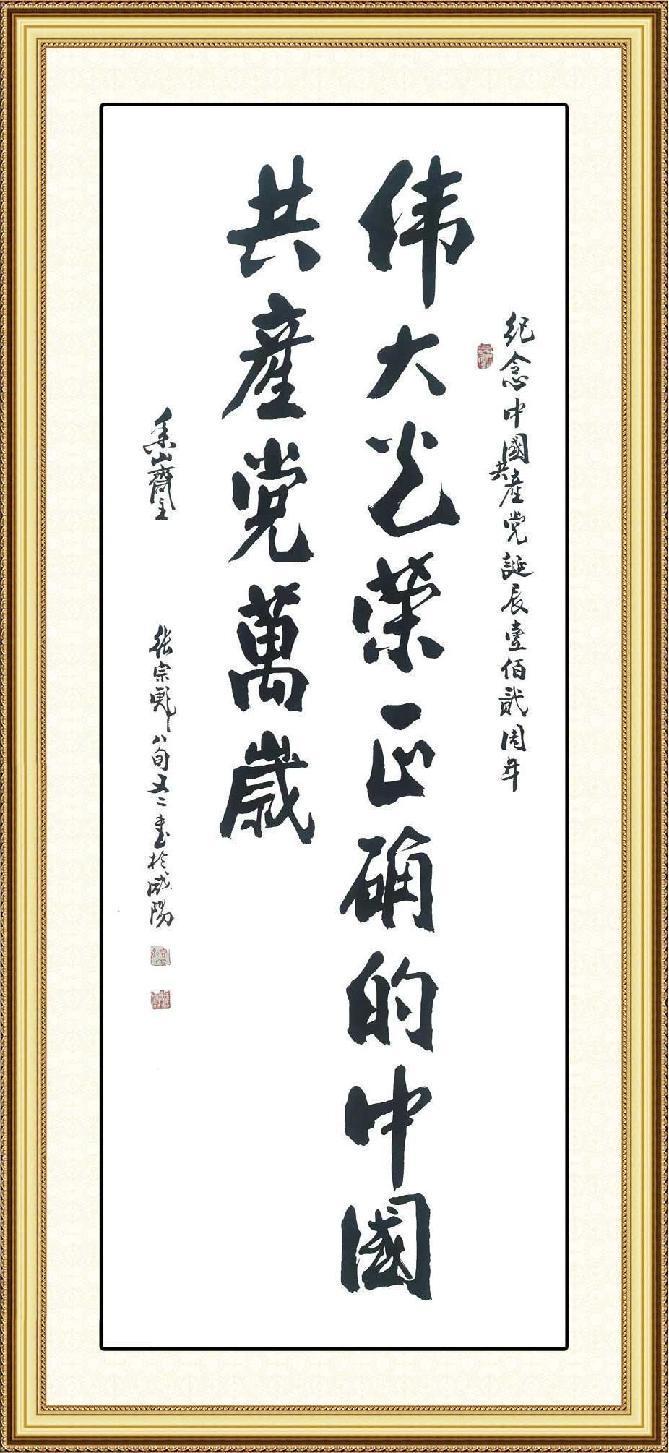 纪念中國共產党誕辰壹佰貳周年
伟大光榮正确的中國
共產党萬歲
山齋主
张宗彪八旬又二书於咸陽